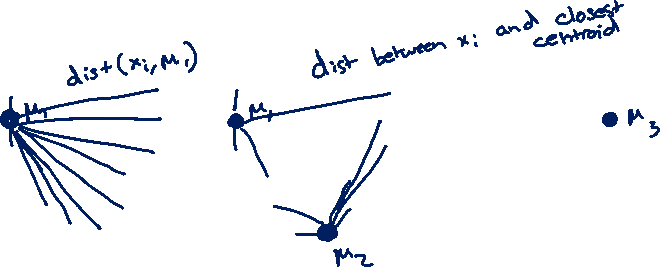 dist(xi, μ1)
μ1
dist between xi and closest
centroid
μ1
μ2
μ3